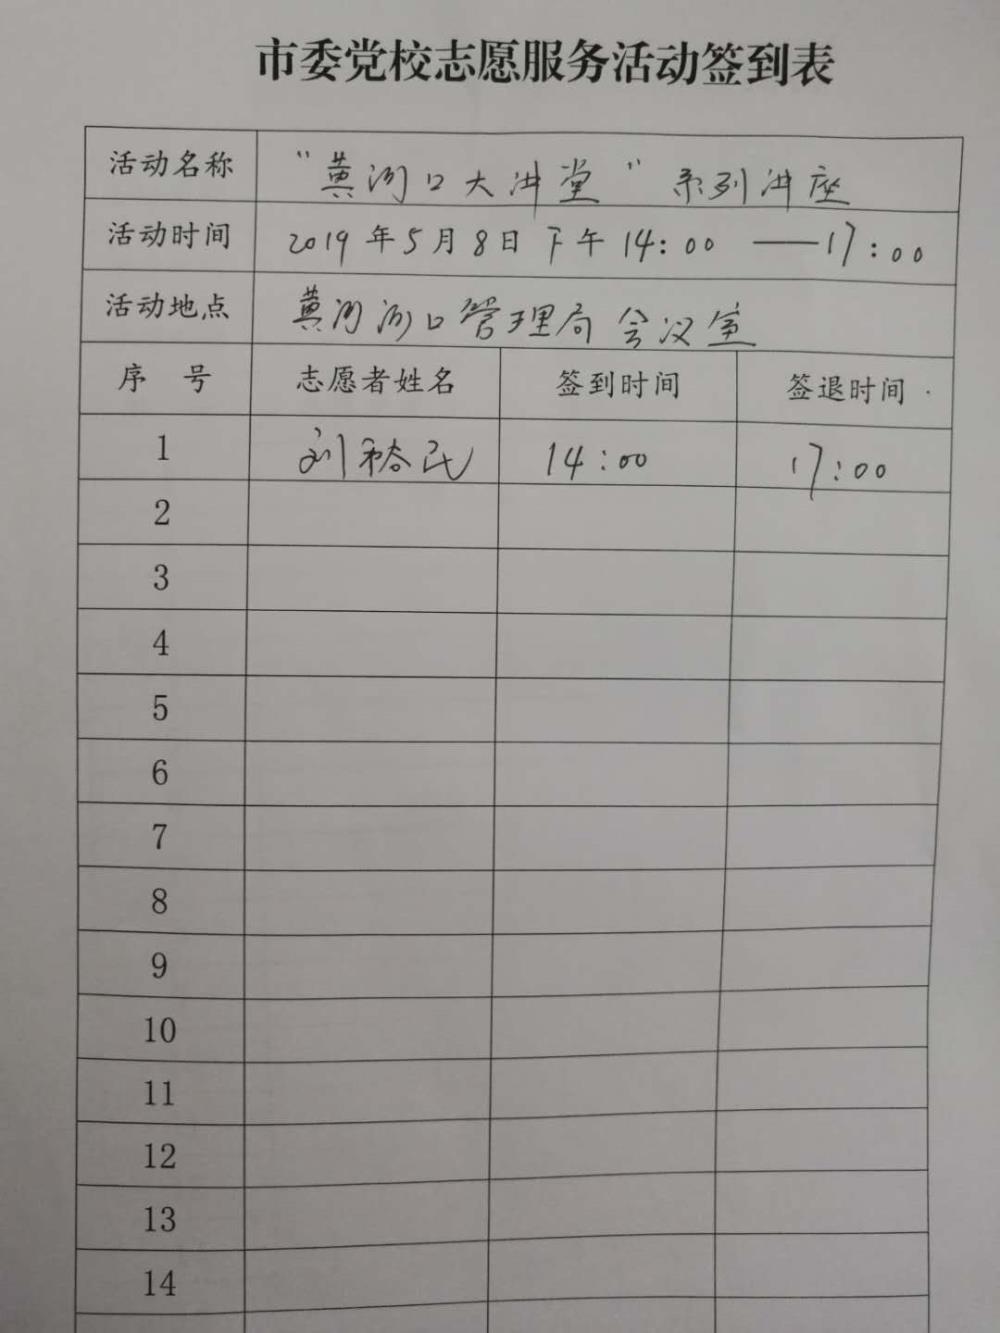 市委党校志愿服务活动签到表
活动名称 "黄河口大讲堂"系列讲座
活动时间 2019年5月8日下午14:00 —— 17:00
活动地点 黄河河口管理局会议室
序 号 志愿者姓名 签到时间 签退时间
1 刘 民 14:00 17:00
2
3
4
5
6
7
8
9
10
11
12
13
14